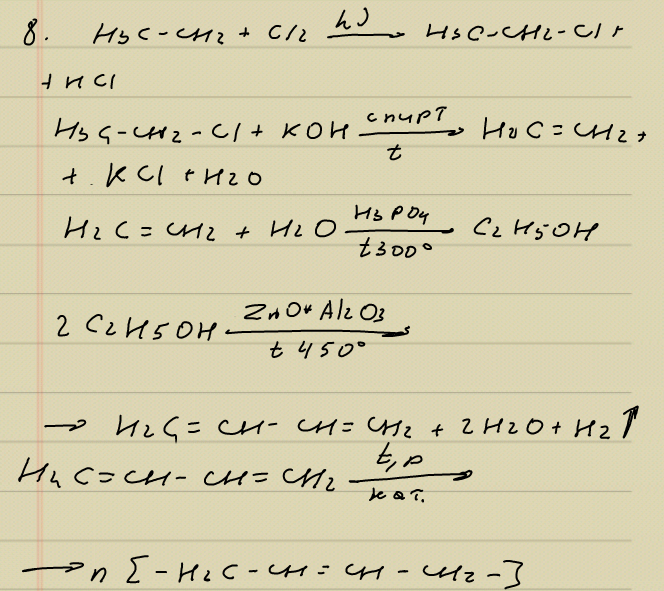 8. H3C-CH2 + Cl2 hν→ H3C-CH2-Cl +
+ HCl
H3C-CH2-Cl + KOH спирт/t→ H2C=CH2 +
+ KCl + H2O
H2C=CH2 + H2O H3PO4/t300°→ C2H5OH
2 C2H5OH ZnO* Al2O3/t 450°→
→ H2C=CH-CH=CH2 + 2H2O + H2↑
H2C=CH-CH=CH2 t,p/кат.→
→ n [-H2C-CH=CH-CH2-]